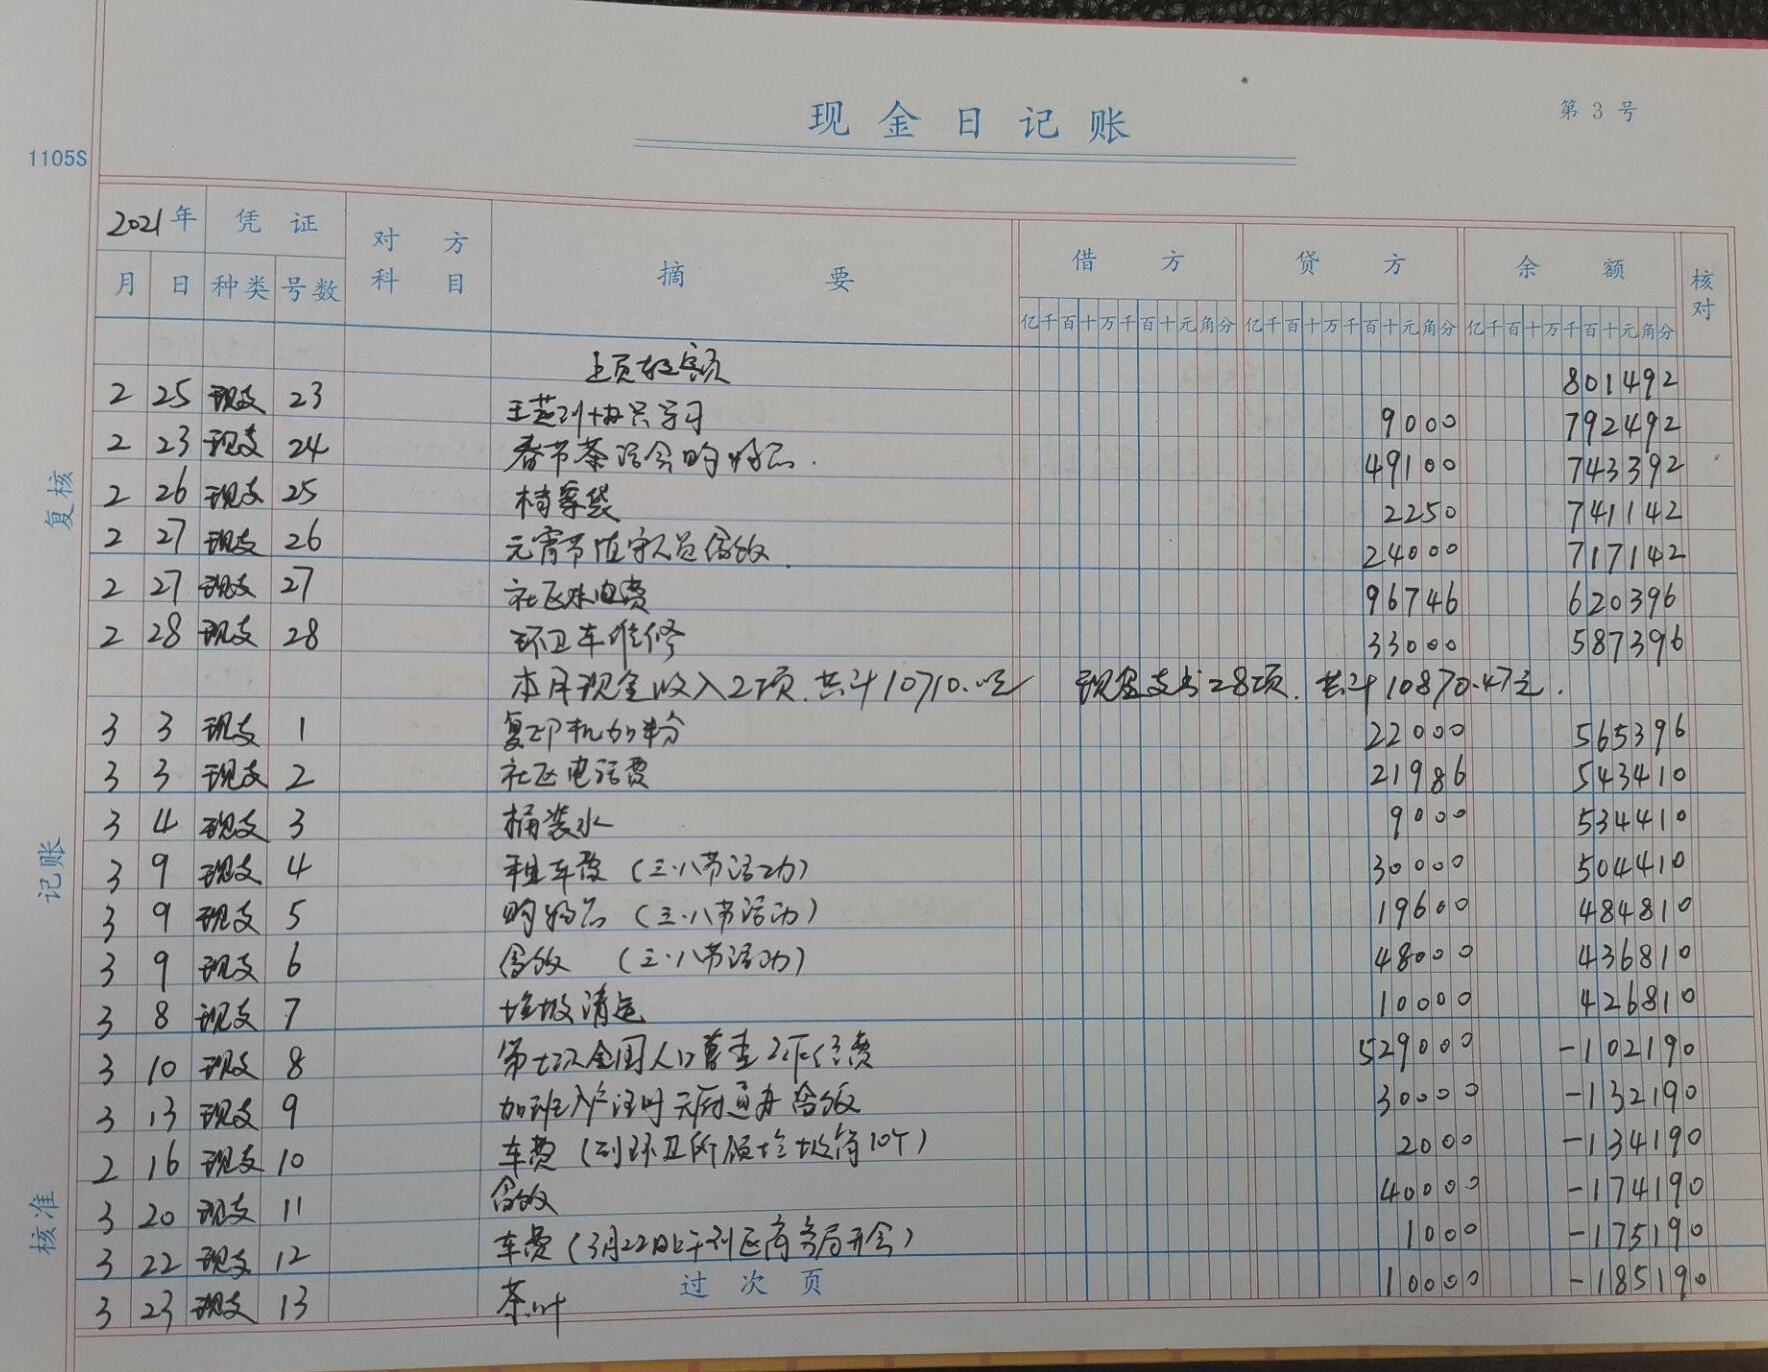 现金日记账
第 3 号
1105S
2021年 凭证 对方科目 摘要 借方 贷方 余额 核对
月 日 种类 号数 亿千百十万千百十元角分 亿千百十万千百十元角分 亿千百十万千百十元角分
上页转余额 801492
2 25 现支 23 学习 9000 792492
2 23 现支 24 春节茶话会购物品. 49100 743392
2 26 现支 25 档案袋 2250 741142
2 27 现支 26 元宵节值守人员餐饮. 24000 717142
2 27 现支 27 社区水电费 96746 620396
2 28 现支 28 环卫车维修 33000 587396
本月现金收入2项.共计10710. 现金支出28项.共计10870.47元.
3 3 现支 1 复印机加粉 22000 565396
3 3 现支 2 社区电话费 21986 543410
3 4 现支 3 桶装水 9000 534410
3 9 现支 4 租车费(三.八节活动) 30000 504410
3 9 现支 5 购物品(三.八节活动) 19600 484810
3 9 现支 6 餐饮(三.八节活动) 48000 436810
3 8 现支 7 垃圾清运 10000 426810
3 10 现支 8 第七次全国人口普查工作经费 529000 -102190
3 13 现支 9 加班入户注册天府通办餐饮 30000 -132190
2 16 现支 10 车费(到环卫所领垃圾筒10个) 2000 -134190
3 20 现支 11 餐饮 40000 -174190
3 22 现支 12 车费(3月22日上午到区商务局开会) 1000 -175190
3 23 现支 13 茶叶 过次页 10000 -185190
复核
记账
核准